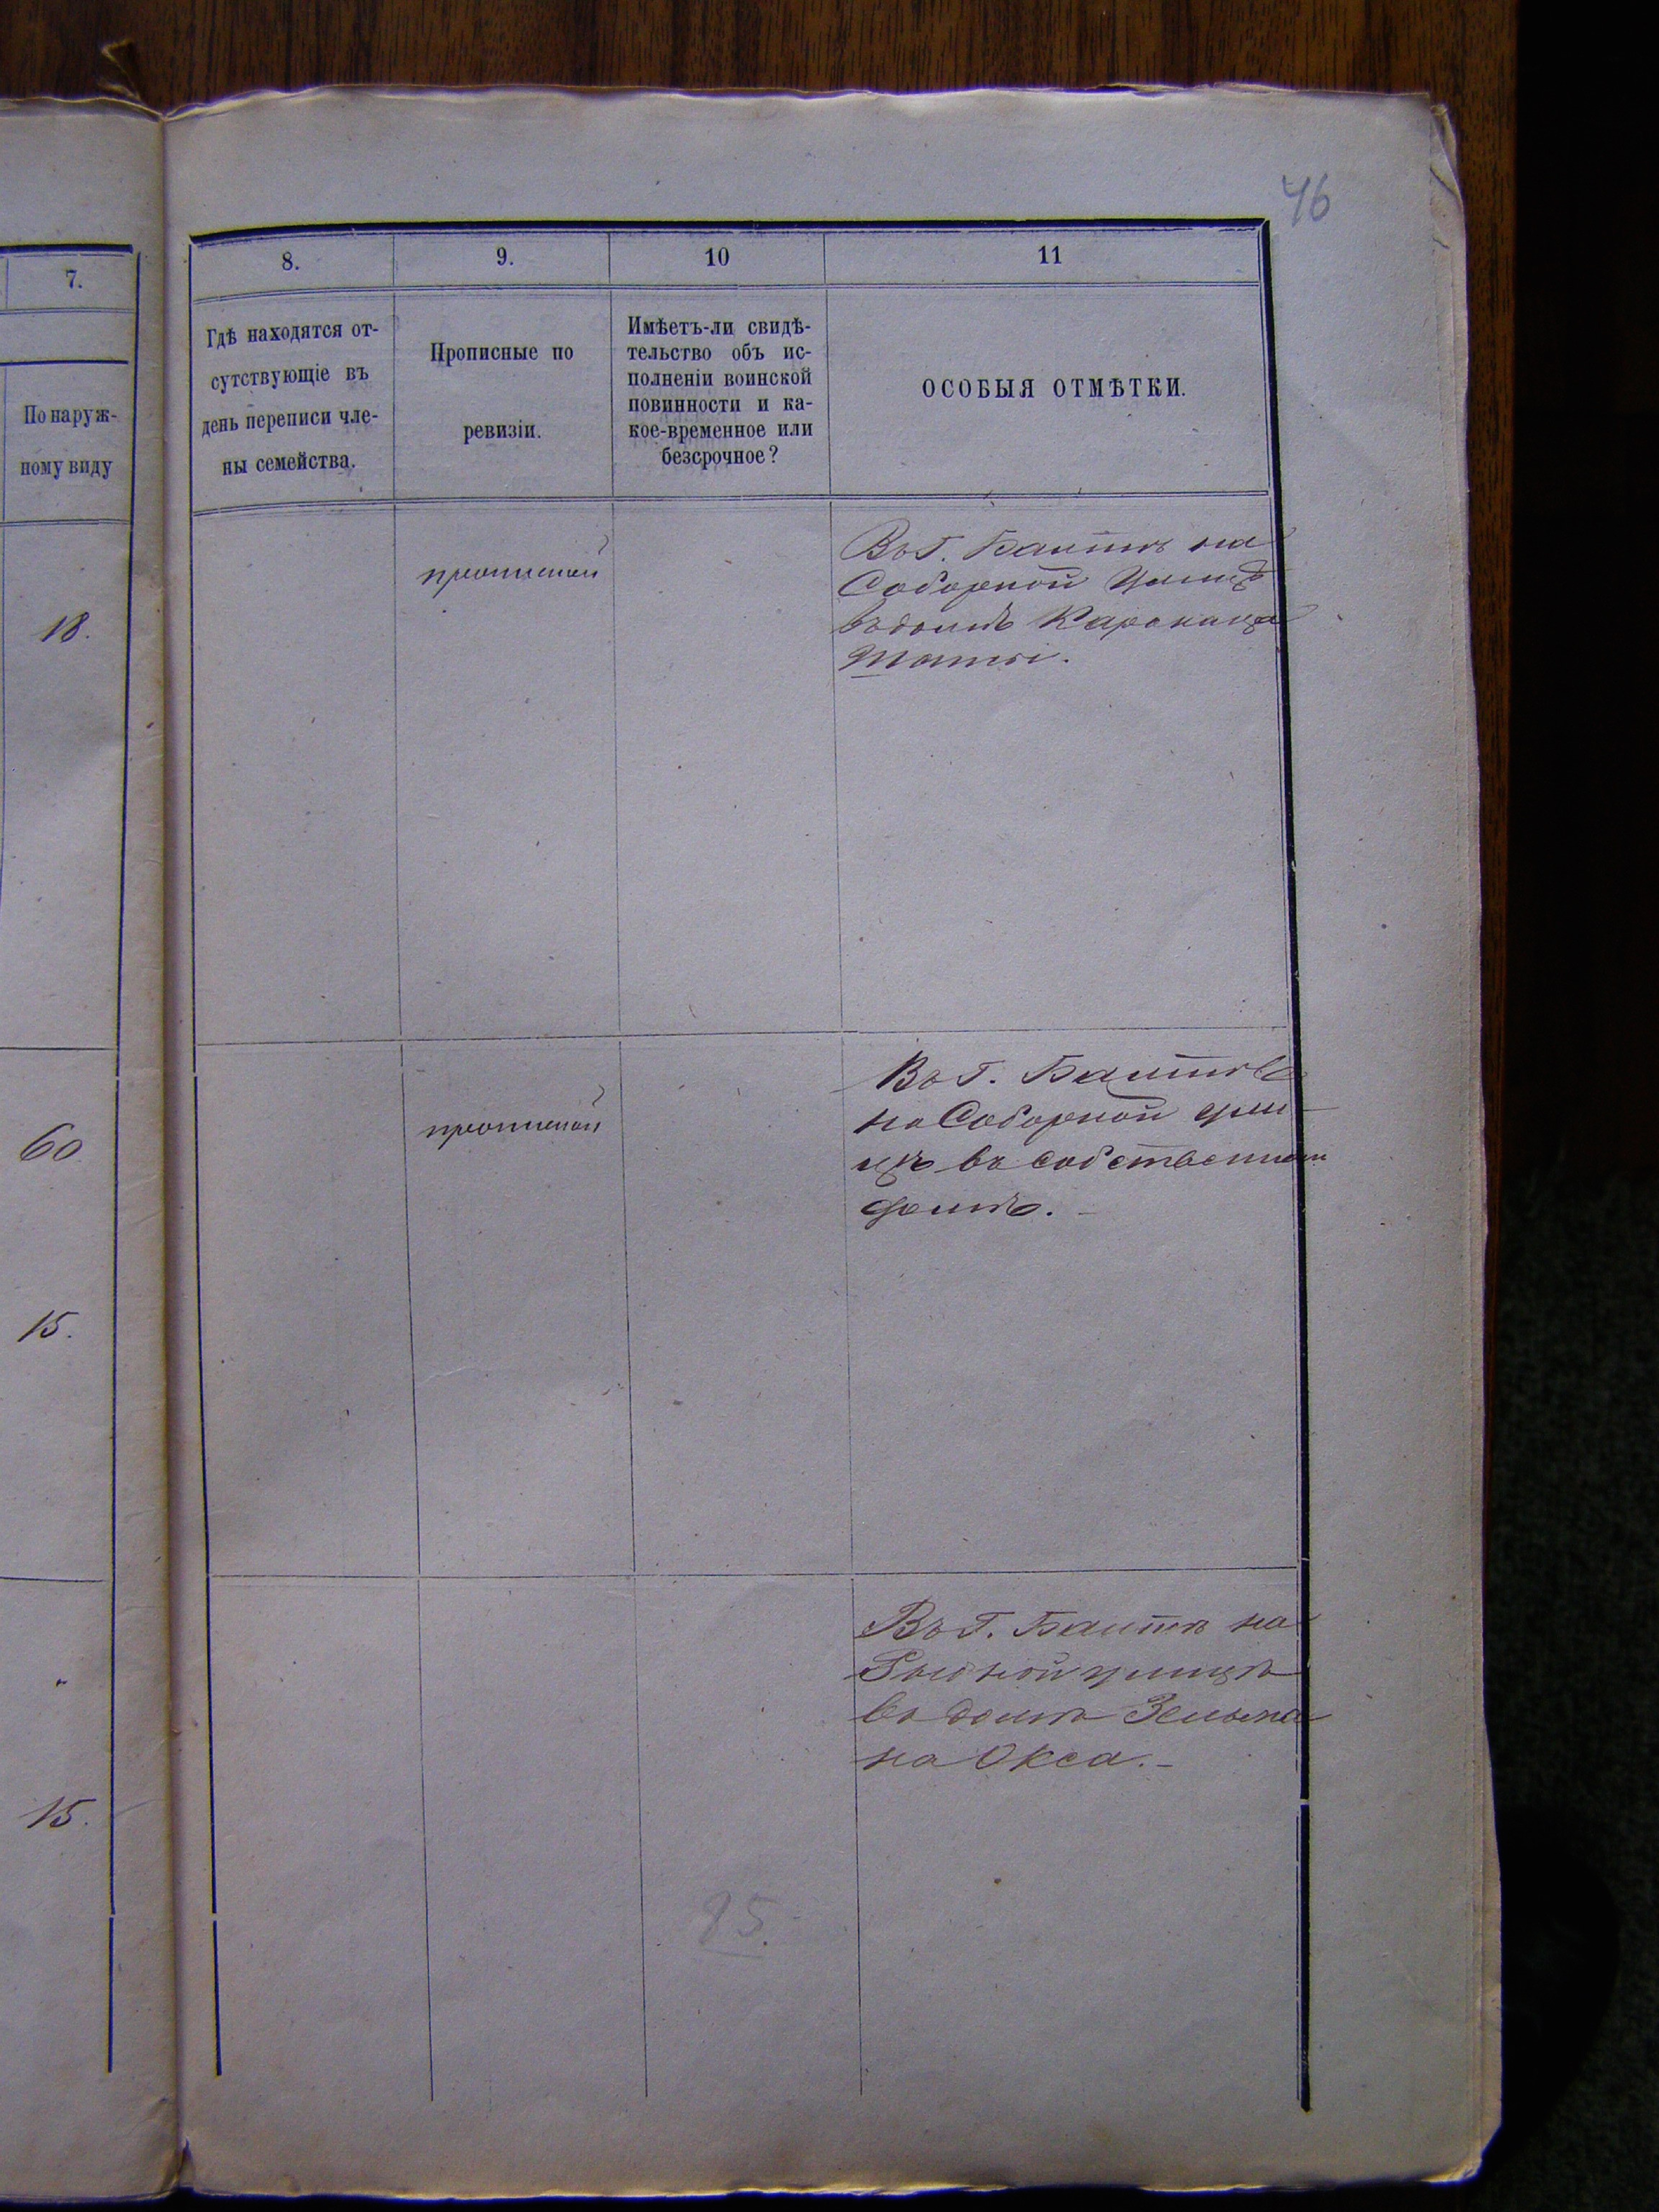 46
7.
По наруж-
ному виду
18.
60
15.
15.
8.
9.
10
11
Гдѣ находятся от-
сутствующіе въ
день переписи чле-
ны семейства.
Прописные по
ревизіи.
Имѣетъ-ли свидѣ-
тельство объ ис-
полненіи воинской
повинности и ка-
кое-временное или
безсрочное?
ОСОБЫЯ ОТМѢТКИ.
прописной
Въ г. Балтѣ на
Соборной улицѣ
въ домѣ
прописной
Въ г. Балтѣ
на Соборной ули-
цѣ въ собственном
домѣ.
Въ г. Балтѣ на
улицѣ
въ домѣ Зельма
на Окса.